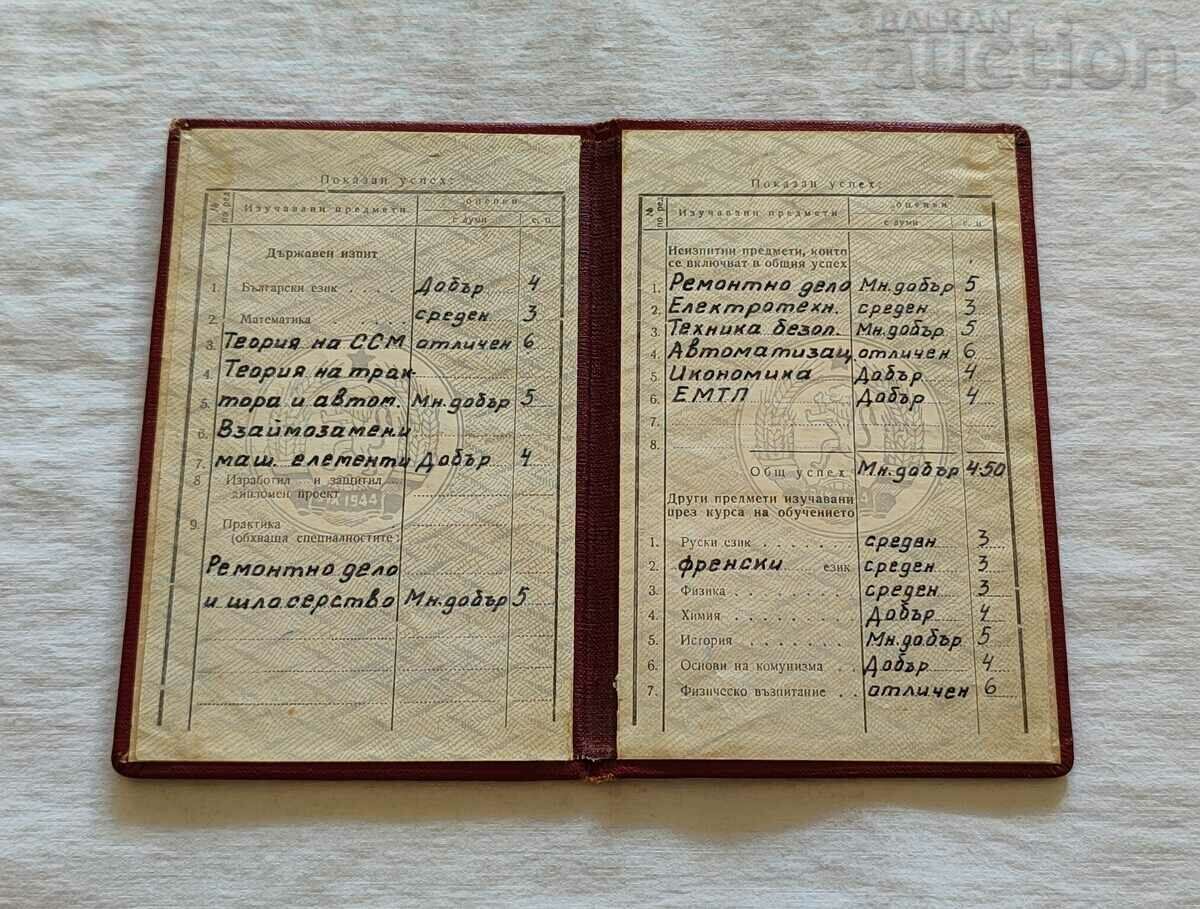 BALKAN
auction
Показан успех:
№ по ред
Изучавани предмети
оценки
с думи
с. ц.
Държавен изпит
1. Български език . . . . Добър 4
2. Математика . . . . . . среден 3
3. Теория на ССМ отличен 6
4. Теория на трак-
5. тора и автом. Мн.добър 5
6. Взаймозамени
7. маш. елементи Добър 4
8 Изработил и защитил
дипломен проект
9. Практика
(обхваща специалностите:
Ремонтно дело
и шлосерство Мн.добър 5
IX 1944
Показан успех:
№ по ред
Изучавани предмети
оценки
с думи
с. ц.
Неизпитни предмети, които
се включват в общия успех
1. Ремонтно дело Мн.добър 5
2. Електротехн. среден 3
3. Техника безоп. Мн.добър 5
4. Автоматизац. отличен 6
5. Икономика Добър 4
6. ЕМТП Добър 4
7.
8.
Общ успех Мн.добър 4.50
Други предмети изучавани
през курса на обучението
1. Руски език . . . . . . . среден 3
2. френски език среден 3
3. Физика . . . . . . . . среден 3
4. Химия . . . . . . . . Добър 4
5. История . . . . . . . Мн.добър 5
6. Основи на комунизма . . Добър 4
7. Физическо възпитание . . отличен 6